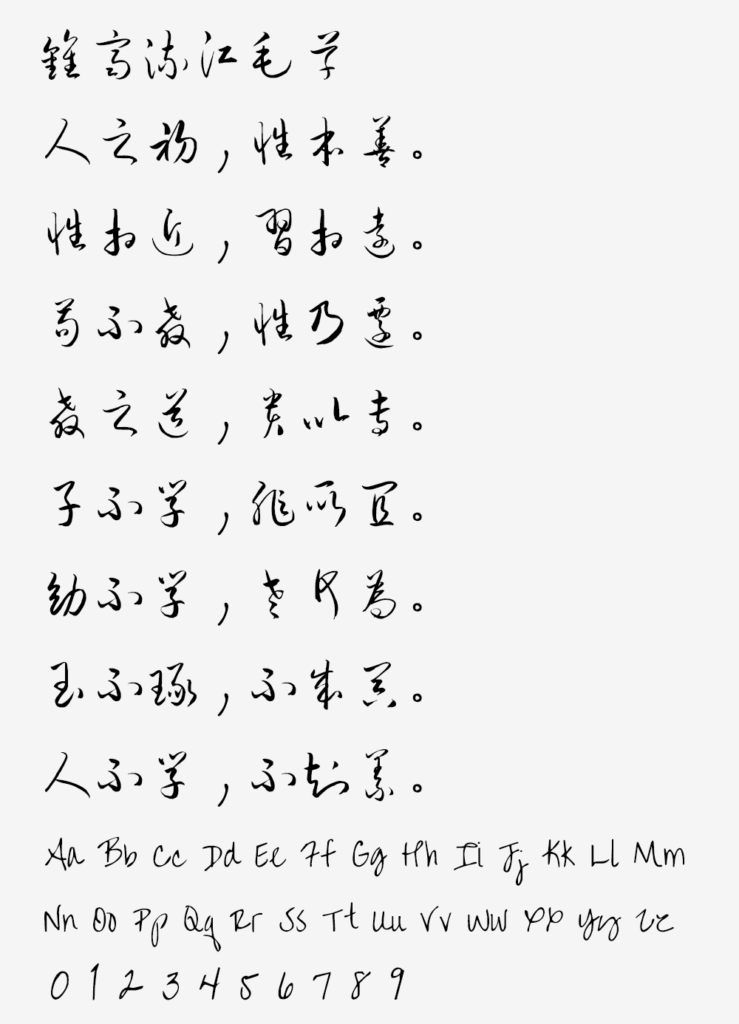 鍾齐流江毛草
人之初，性本善。
性相近，習相遠。
苟不教，性乃遷。
教之道，貴以專。
子不學，非所宜。
幼不學，老何為。
玉不琢，不成器。
人不學，不知義。
Aa Bb Cc Dd Ee Ff Gg Hh Ii Jj Kk Ll Mm
Nn Oo Pp Qq Rr Ss Tt Uu Vv Ww Xx Yy Zz
0 1 2 3 4 5 6 7 8 9